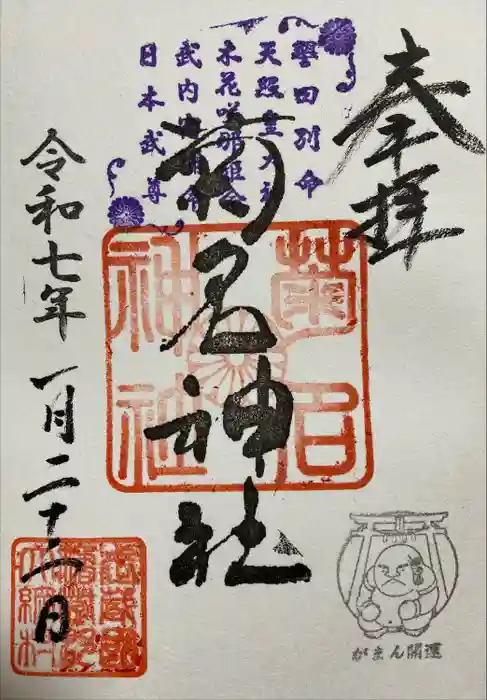 奉拝
譽田別命
天照皇大神
木花咲耶姫命
武内宿禰命
日本武尊
菊名神社
菊名
神社
令和七年 一月二十二日
大綱村
がまん開運